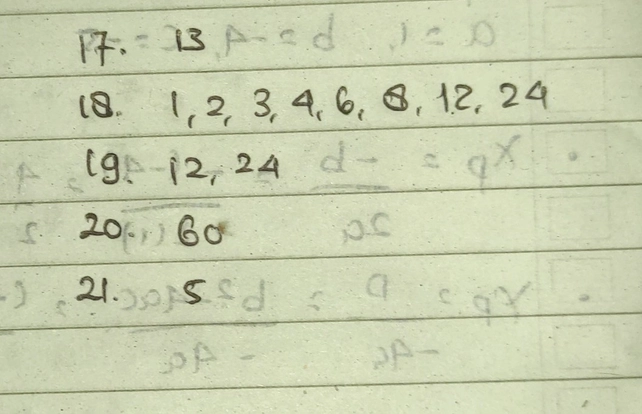 17. 13
18. 1, 2, 3, 4, 6, 8, 12, 24
19. 12, 24
20. 60
21. 5